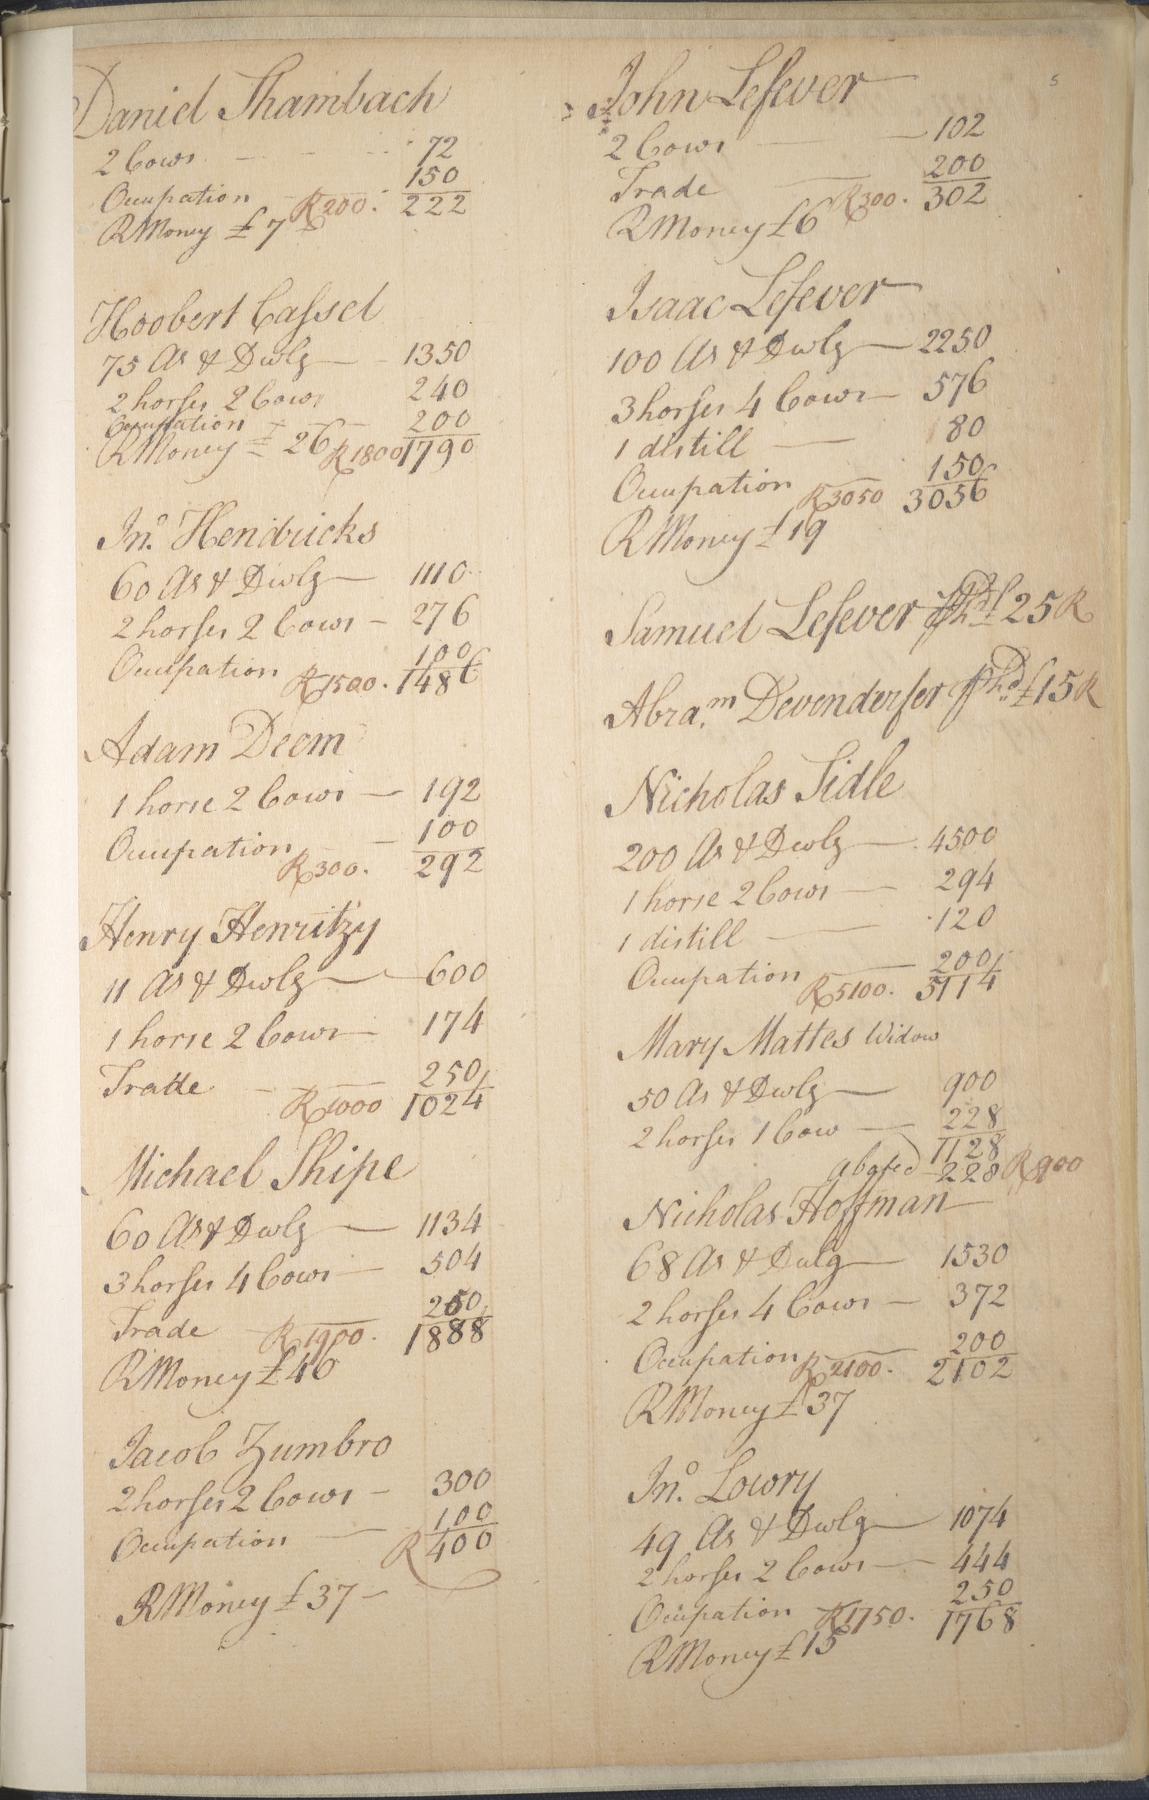 Daniel Shambach
2 Cows 72
Occupation 150
R200. 222
RMoney £7
Hoobert Cassel
75 As & Dwlg 1350
2 horses 2 Cows 240
Occupation 200
RMoney £26 R1800 1790
Jno. Hendricks
60 As & Dwlg 1110
2 horses 2 Cows 276
Occupation 100
R1500. 1486
Adam Deem
1 horse 2 Cows 192
Occupation 100
R300. 292
Henry Henritzy
11 As & Dwlg 600
1 horse 2 Cows 174
Trade 250
R1000 1024
Michael Shipe
60 As & Dwlg 1134
3 horses 4 Cows 504
Trade 250
R1900. 1888
RMoney £46
Jacob Zumbro
2 horses 2 Cows 300
Occupation 100
R 400
RMoney £37
5
John Lefever
2 Cows 102
Trade 200
R300. 302
RMoney £6
Isaac Lefever
100 As & Dwlg 2250
3 horses 4 Cows 576
1 distill 80
Occupation 150
R3050 3056
RMoney £19
Samuel Lefever 25 R
Abram. Devenderfer £15 R
Nicholas Sidle
200 As & Dwlg 4500
1 horse 2 Cows 294
1 distill 120
Ocupation 200
R5100. 5114
Mary Mattes Widow
50 As & Dwlg 900
2 horses 1 Cow 228
1128
abated 228 R900
Nicholas Hoffman
68 As & Dwlg 1530
2 horses 4 Cows 372
Occupation 200
R2100. 2102
RMoney £37
Jno. Lowry
49 As & Dwlg 1074
2 horses 2 Cows 444
Ocupation 250
R1750. 1768
RMoney £15